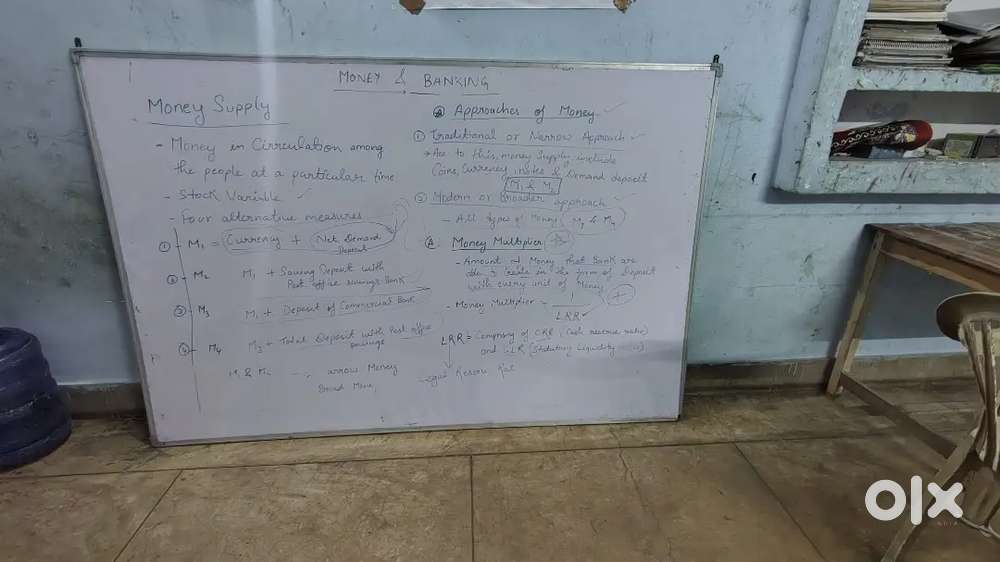 MONEY & BANKING
Money Supply
- Money in Cirrculation among
the people at a particular time
- Stock Variable
- Four alternative measures
① M₁ = Currency + Net Demand
Deposit
② M₂ M₁ + Saving Deposit with
Post office savings Bank
③ M₃ M₁ + Deposit of Commercial Bank
④ M₄ M₃ + Total Deposit with Post office
M₁ & M₂ arrow Money
Broad Mone
Approaches of Money
① Traditional or Narrow Approach
→ Acc to this, money Supply include
Coins, Currency notes & Demand deposit
M₁ & M₂
② Modern or Broader approach
- All types of Money M₃ & M₄
Money Multiplier
- Amount of Money that Bank are
able to create in the form of Deposit
with every unit of Money
- Money Multiplier = 1
LRR
LRR = Comprising of CRR (Cash reserve ratio)
and SLR (Statutory Liquidity
egal Reserv Rat
olx
INDIA